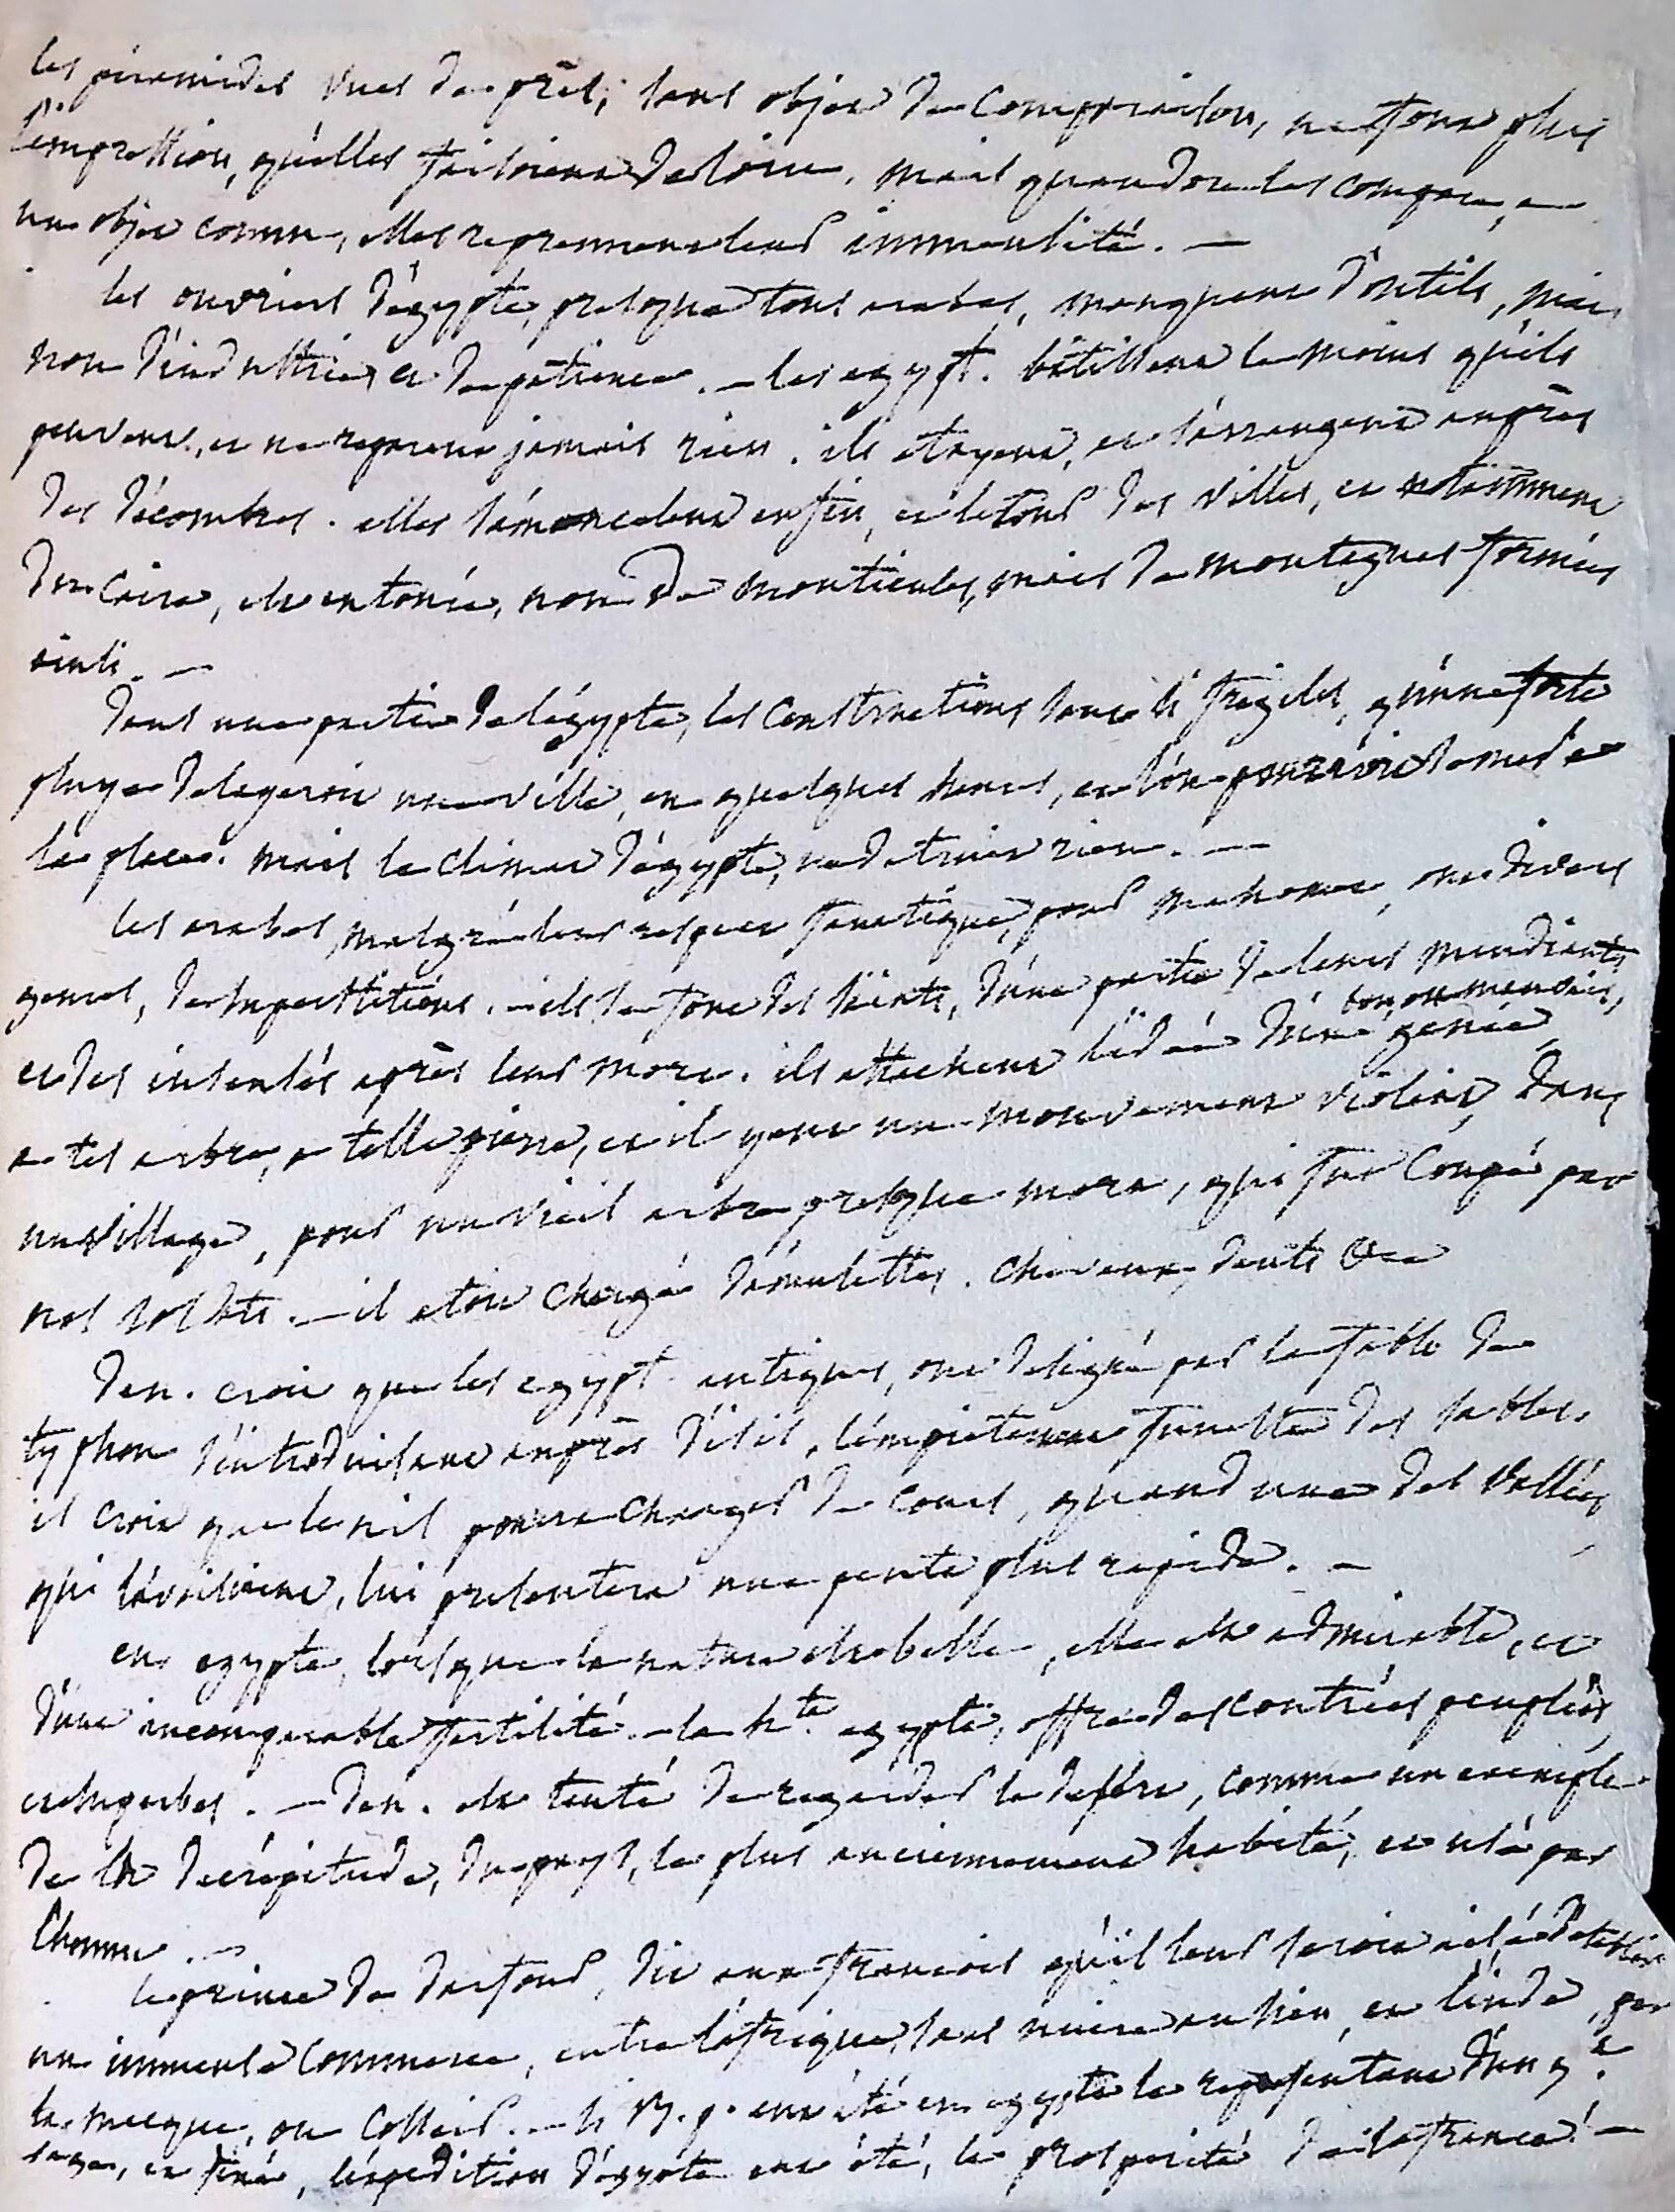 les piramides vues de près, sans objet de comparaison, ne font plus
l'impression, qu'elles faisoient de loin, mais quand on les compare, a
un objet connu, elles reprennent leur immensité. —
les ouvriers d'égypte, presque tous arabes, manquent d'outils, mais
non d'industrie, et de patience. — les egypt. bâtissent le moins qu'ils
peuvent, et ne reparent jamais rien. ils etayent, et s'arrangent auprès
des décombres. elles s'amoncelent enfin, et le tour des villes, et notamment
du Caire, est entouré, non de monticules, mais de montagnes formées
ainsi. —
dans une partie de l'égypte, les constructions sont si fragiles, qu'une forte
pluye delayeroit une ville, en quelques heures, et l'on pourroit semer a
la place. mais le climat d'égypte, ne detruit rien. —
les arabes, malgré leur respect fanatique, pour mahomet, ont divers
genres, de superstitions. — ils se font des saints, d'une partie de leurs mendiants
et des insensés après leur mort. ils attachent l'idée d'un génie,
bon, ou mauvais,
a tel arbre, a telle pierre, et il y eut un mouvement violent, dans
un village, pour un vieil arbre, presque mort, qui fut coupé par
nos soldats. — il etoit chargé d'amulettes, cheveux, dents &a
Den. croit que les egypt. antiques, ont designé par la fable de
typhon s'introduisant auprès d'isis, l'empietement funeste des sables.
il croit que le nil pourra changer de cours, quand une des vallées
qui l'avoisinent, lui presentera une pente plus rapide. —
en egypte, lorsque la nature est belle, elle est admirable, et
d'une incomparable fertilité. — la hte egypte, offre des contrées peuplées,
et superbes. — Den. est tenté de regarder le desert, comme un exemple
de la decrépitude, du pays, le plus anciennement habité, et usé par
l'homme. —
le prince de darfour, dit aux francois qu'il leur seroit aisé d'etablir
un immense commerce, entre l'afrique, sans nuire au sien, et l'inde, par
la mecque, ou Cosseir. — si B. p. eut été en egypte le representant d'un g.t
sage, et sensé, l'expedition d'egypte eut été, la prosperité de la france! —